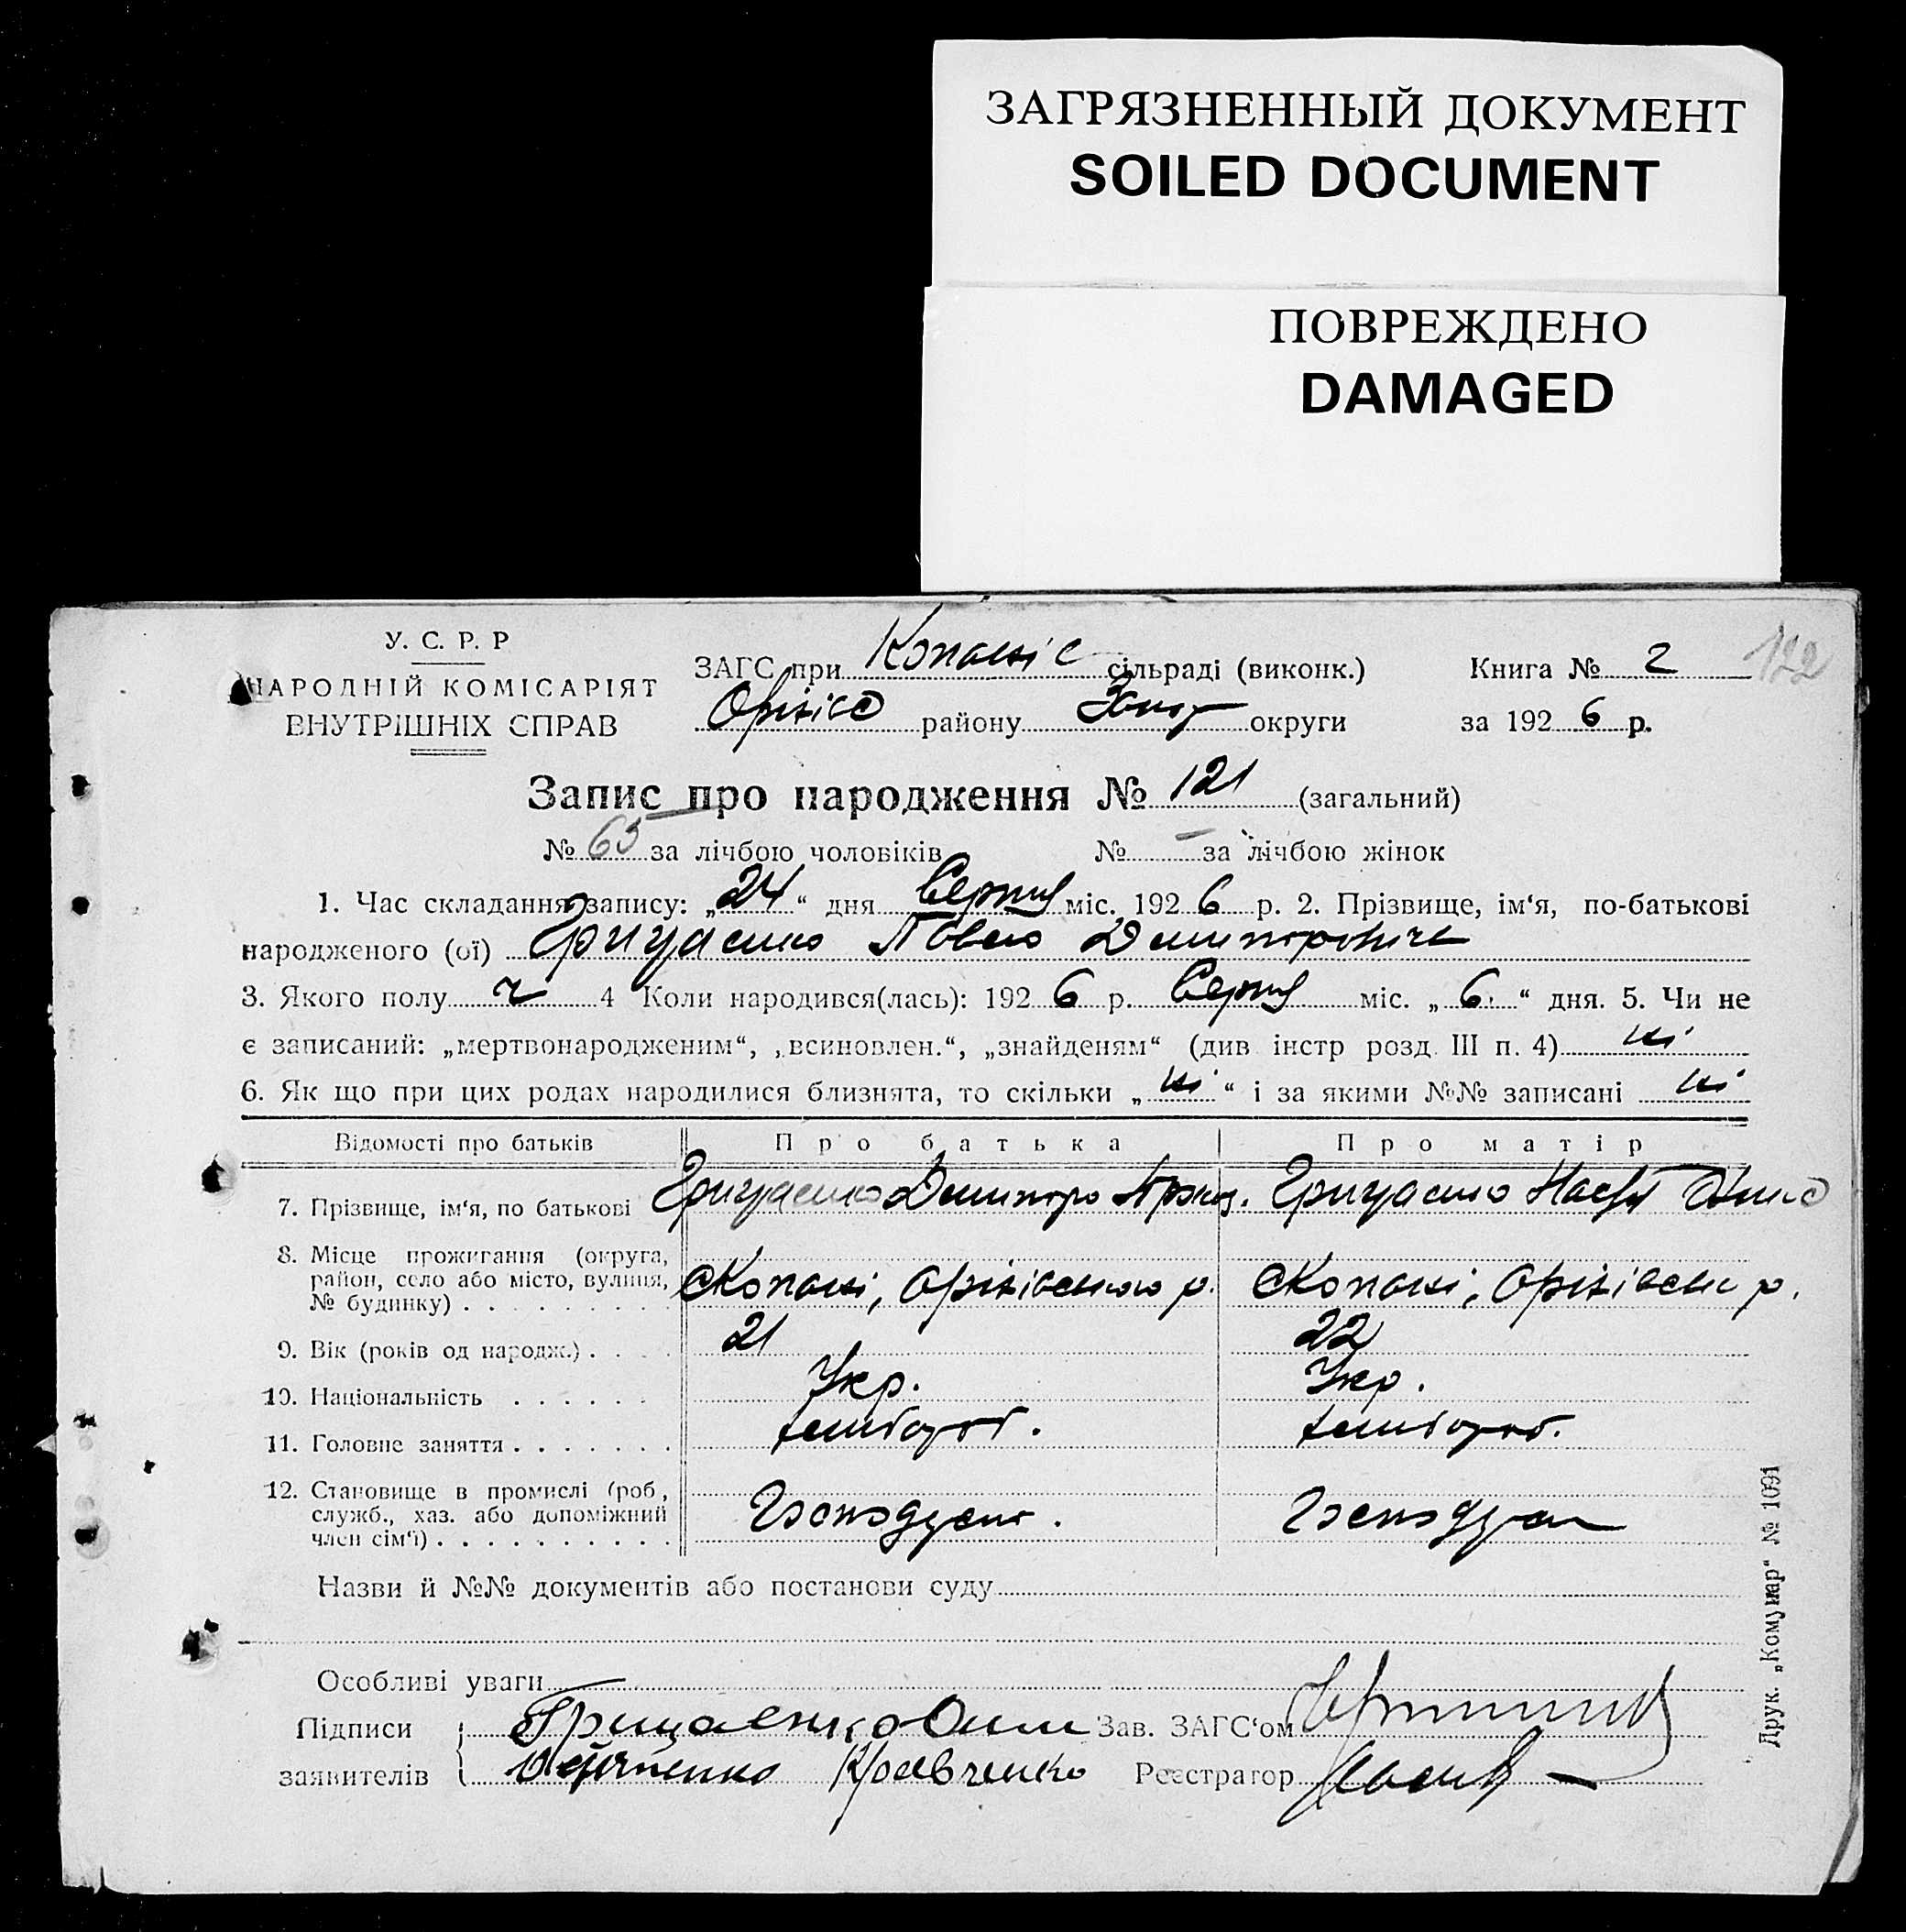 ЗАГРЯЗНЕННЫЙ ДОКУМЕНТ
SOILED DOCUMENT
ПОВРЕЖДЕНО
DAMAGED
122
У. С. Р. Р
НАРОДНІЙ КОМІСАРІЯТ
ВНУТРІШНІХ СПРАВ
ЗАГС при Копаніс сільраді (виконк.) Книга № 2
Оріхівс району округи за 192 6 р.
Запис про народження № 121 (загальний)
№ 65 за лічбою чоловіків № – за лічбою жінок
1. Час складання запису: „24“ дня Серпня міс. 192 6 р. 2. Прізвище, ім‘я, по-батькові
народженого (ої) Грицаенко Павло Демитрович
3. Якого полу ч 4 Коли народився(лась): 192 6 р. Серпня міс. „6“ дня. 5. Чи не
є записаний: „мертвонародженим“, „всиновлен.“, „знайденям“ (див інстр розд. III п. 4) ні
6. Як що при цих родах народилися близнята, то скільки „ні“ і за якими №№ записані ні
Відомості про батьків Про батька Про матір
7. Прізвище, ім‘я, по батькові Грицаенко Демитро Грицаенко
8. Місце прожигання (округа, район, село або місто, вулиця, № будинку) . . . . . . . . . сКопані, Оріхівського р. сКопані, Оріхівськ р.
9. Вік (років од народж.) . . . . 21 22
10. Національність . . . . . . Укр. Укр.
11. Головне заняття . . . . . . . хлибороб. хлибороб.
12. Становище в промислі (роб., служб., хаз. або допоміжний член сім‘ї) . . . . . . . . . .
Назви й №№ документів або постанови суду
Особливі уваги
Підписи Грицаенко Зав. ЗАГС‘ом
заявителів Кравченко Реєстратор
Друк. „Комунар“ № 1091